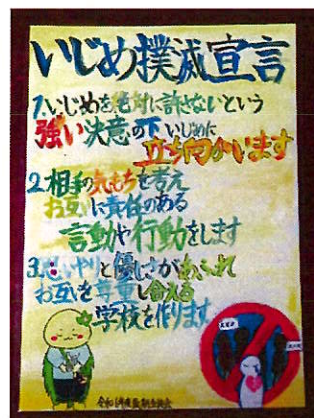 いじめ撲滅宣言
1.いじめを絶対に許さないという
強い決意の下いじめに
立ち向かいます
2.相手の気もちを考え
お互いに責任のある
言動や行動をします
3.思いやりと優しさがあふれ
お互を尊重し合える
学校を作ります